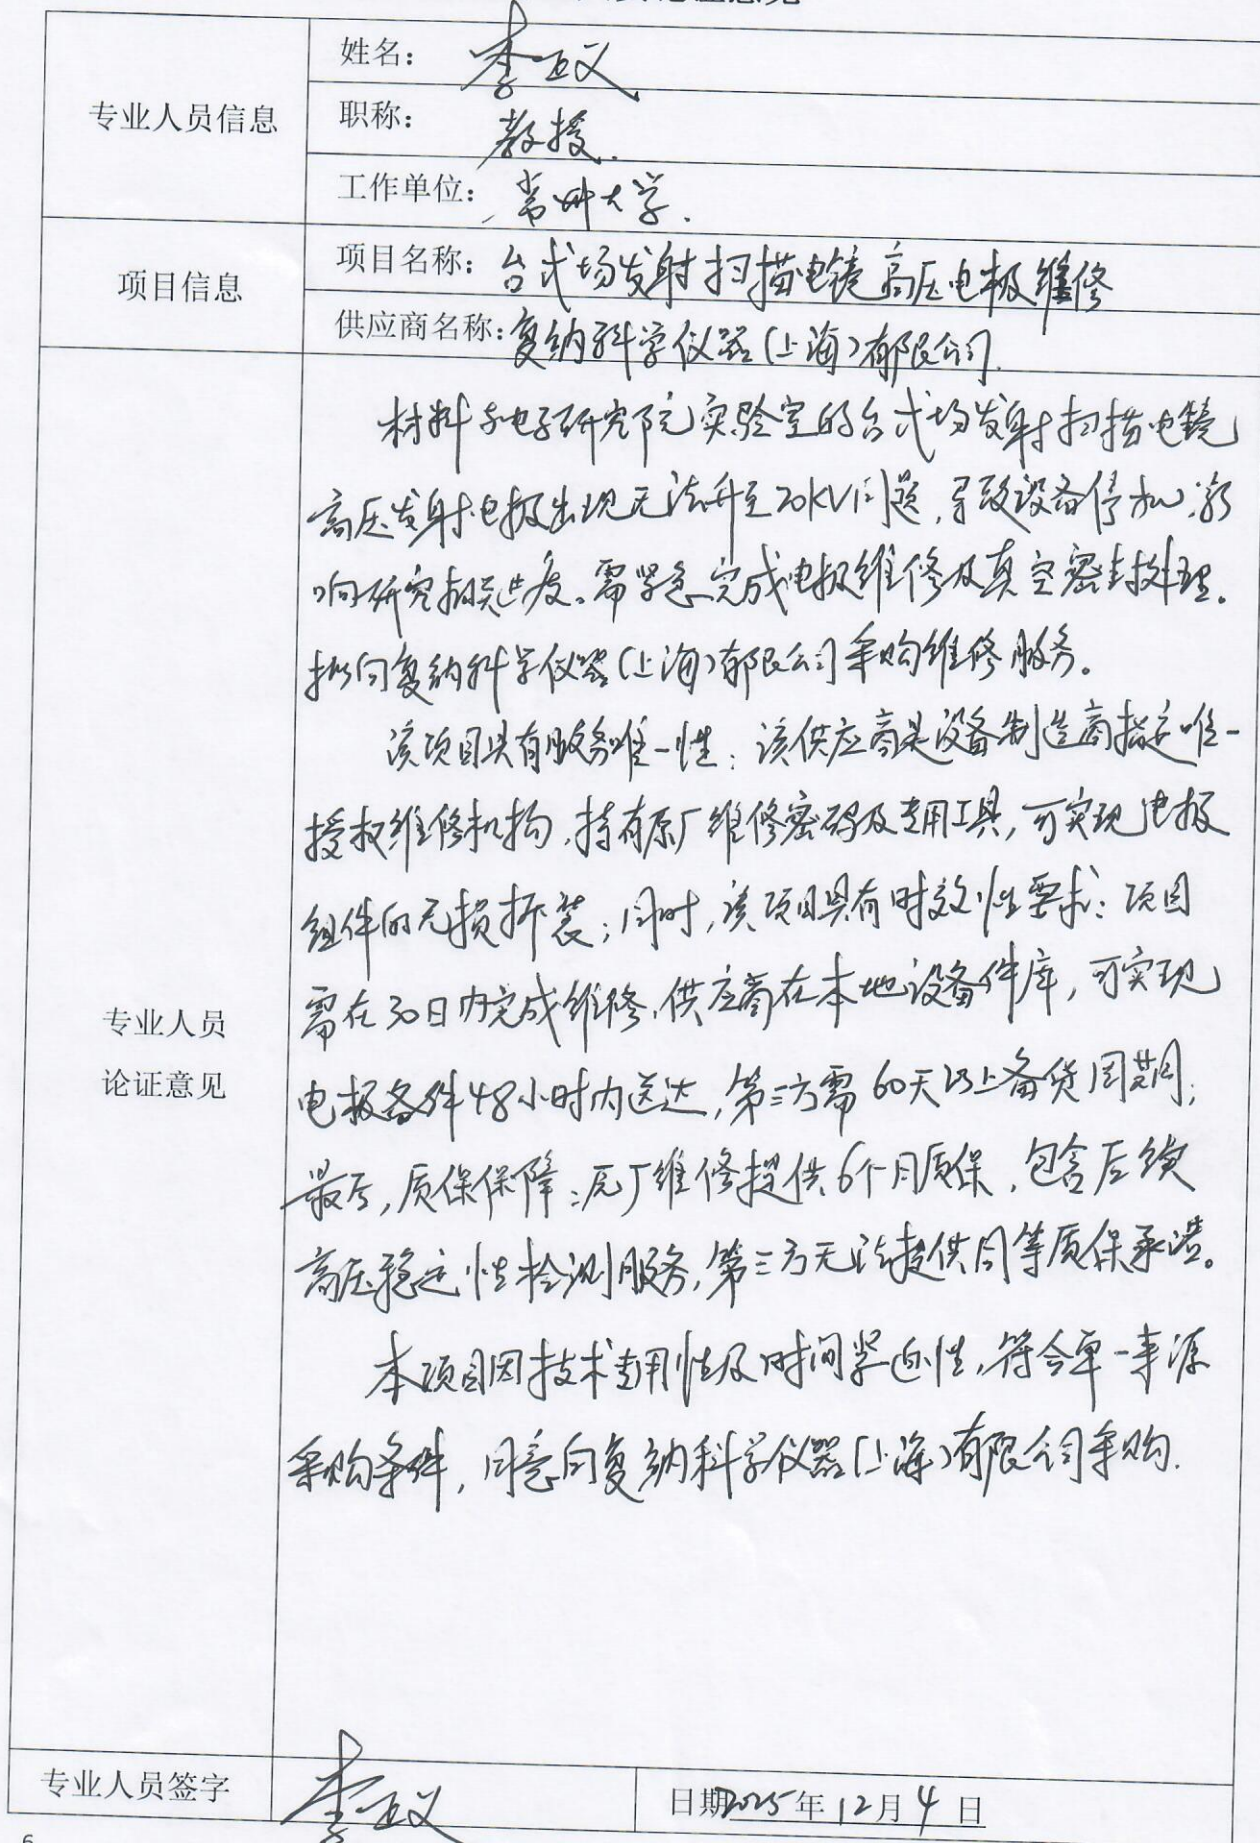 姓名：李正义
专业人员信息
职称：教授.
工作单位：常州大学.
项目信息
项目名称：台式场发射扫描电镜高压电极维修
供应商名称：复纳科学仪器(上海)有限公司.
材料与电子研究院实验室的台式场发射扫描电镜
高压发射电极出现无法升至20KV问题，导致设备停机，影
响研究相关进度。需紧急完成电极维修及真空密封处理。
拟向复纳科学仪器(上海)有限公司采购维修服务。
该项目具有服务唯一性：该供应商是设备制造商指定唯一
授权维修机构，持有原厂维修密码及专用工具，可实现电极
组件的无损拆装；同时，该项目具有时效性要求：项目
需在30日内完成维修，供应商在本地设备件库，可实现
专业人员
论证意见
电极备件48小时内送达，第三方需60天以上备货周期；
最后，质保保障：原厂维修提供6个月质保，包含后续
高压稳定性检测服务，第三方无法提供同等质保承诺。
本项目因技术专用性及时间紧迫性，符合单一来源
采购条件，同意向复纳科学仪器(上海)有限公司采购.
专业人员签字
李正义
日期2025年12月4日
6